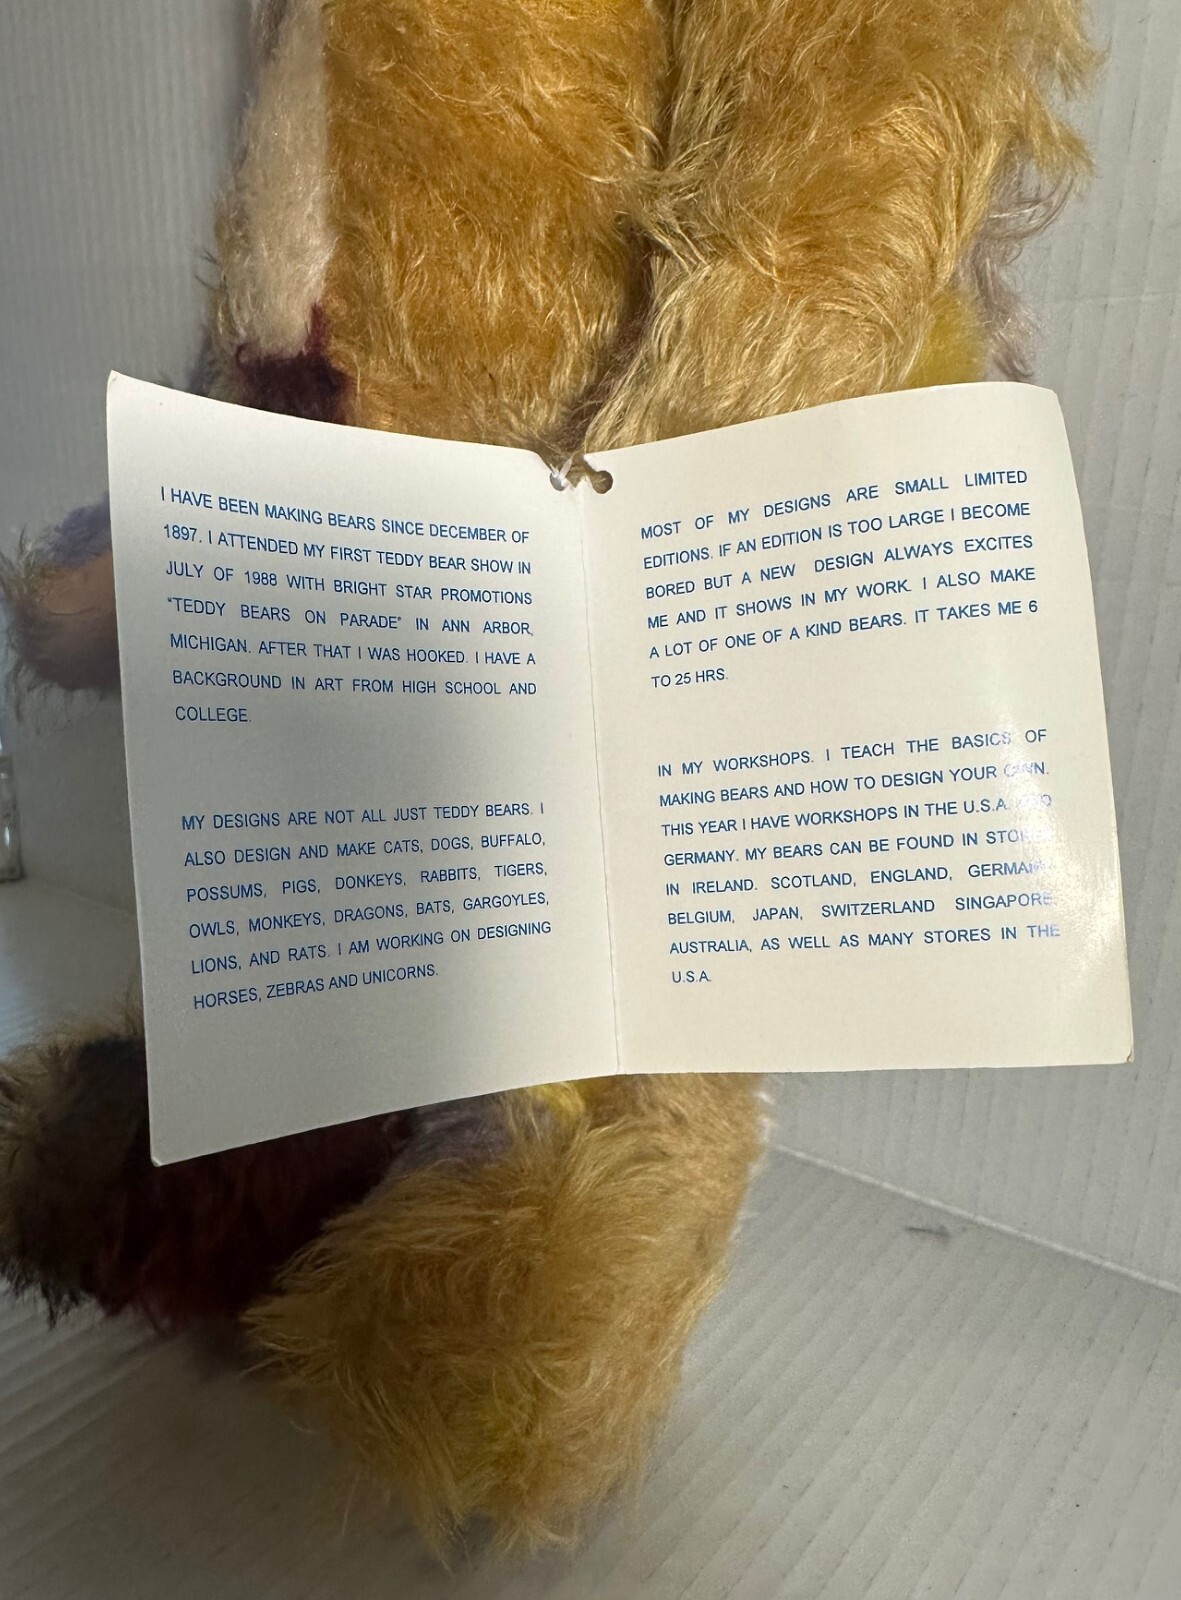 I HAVE BEEN MAKING BEARS SINCE DECEMBER OF
1897. I ATTENDED MY FIRST TEDDY BEAR SHOW IN
JULY OF 1988 WITH BRIGHT STAR PROMOTIONS
"TEDDY BEARS ON PARADE" IN ANN ARBOR,
MICHIGAN. AFTER THAT I WAS HOOKED. I HAVE A
BACKGROUND IN ART FROM HIGH SCHOOL AND
COLLEGE.
MY DESIGNS ARE NOT ALL JUST TEDDY BEARS. I
ALSO DESIGN AND MAKE CATS, DOGS, BUFFALO,
POSSUMS, PIGS, DONKEYS, RABBITS, TIGERS,
OWLS, MONKEYS, DRAGONS, BATS, GARGOYLES,
LIONS, AND RATS. I AM WORKING ON DESIGNING
HORSES, ZEBRAS AND UNICORNS.
MOST OF MY DESIGNS ARE SMALL LIMITED
EDITIONS. IF AN EDITION IS TOO LARGE I BECOME
BORED BUT A NEW DESIGN ALWAYS EXCITES
ME AND IT SHOWS IN MY WORK. I ALSO MAKE
A LOT OF ONE OF A KIND BEARS. IT TAKES ME 6
TO 25 HRS.
IN MY WORKSHOPS. I TEACH THE BASICS OF
MAKING BEARS AND HOW TO DESIGN YOUR OWN.
THIS YEAR I HAVE WORKSHOPS IN THE U.S.A. AND
GERMANY. MY BEARS CAN BE FOUND IN STORES
IN IRELAND. SCOTLAND, ENGLAND, GERMANY,
BELGIUM, JAPAN, SWITZERLAND SINGAPORE,
AUSTRALIA, AS WELL AS MANY STORES IN THE
U.S.A.